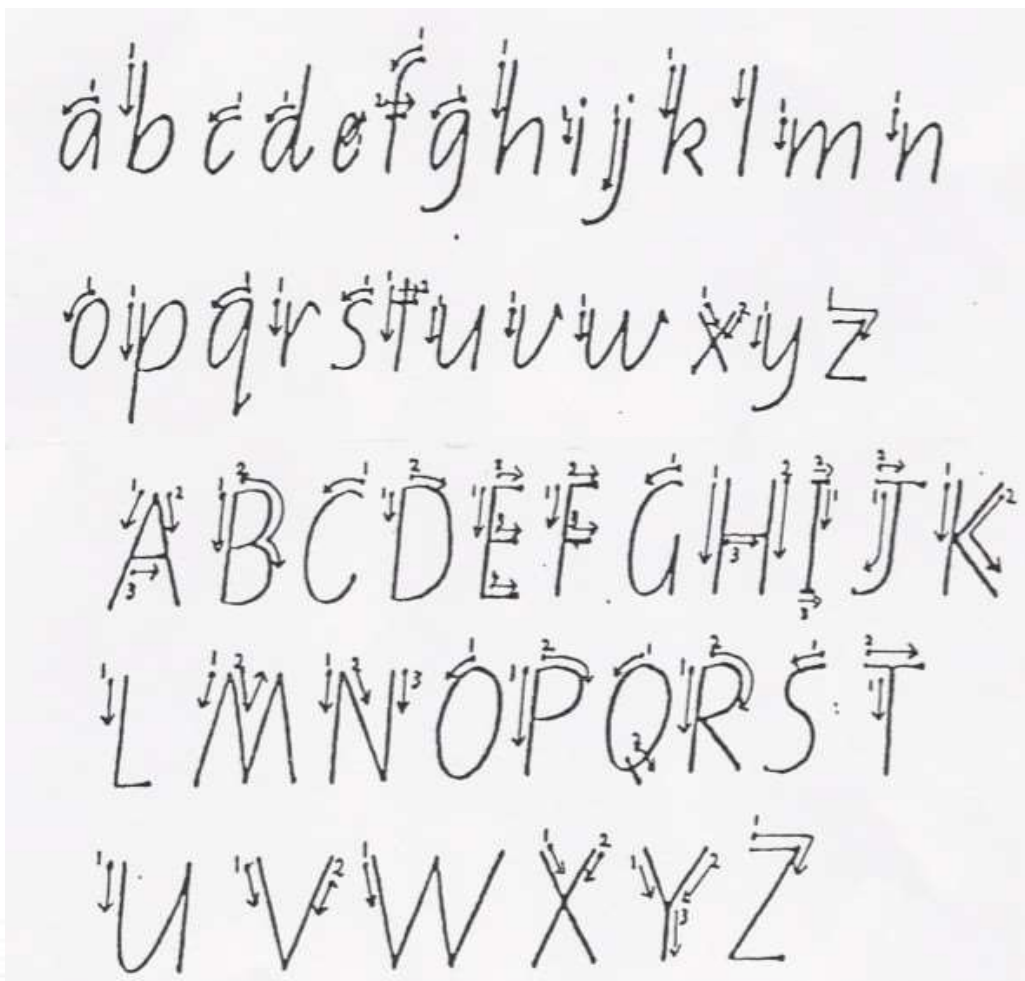 a b c d e f g h i j k l m n
o p q r s t u v w x y z
A B C D E F G H I J K
L M N O P Q R S T
U V W X Y Z